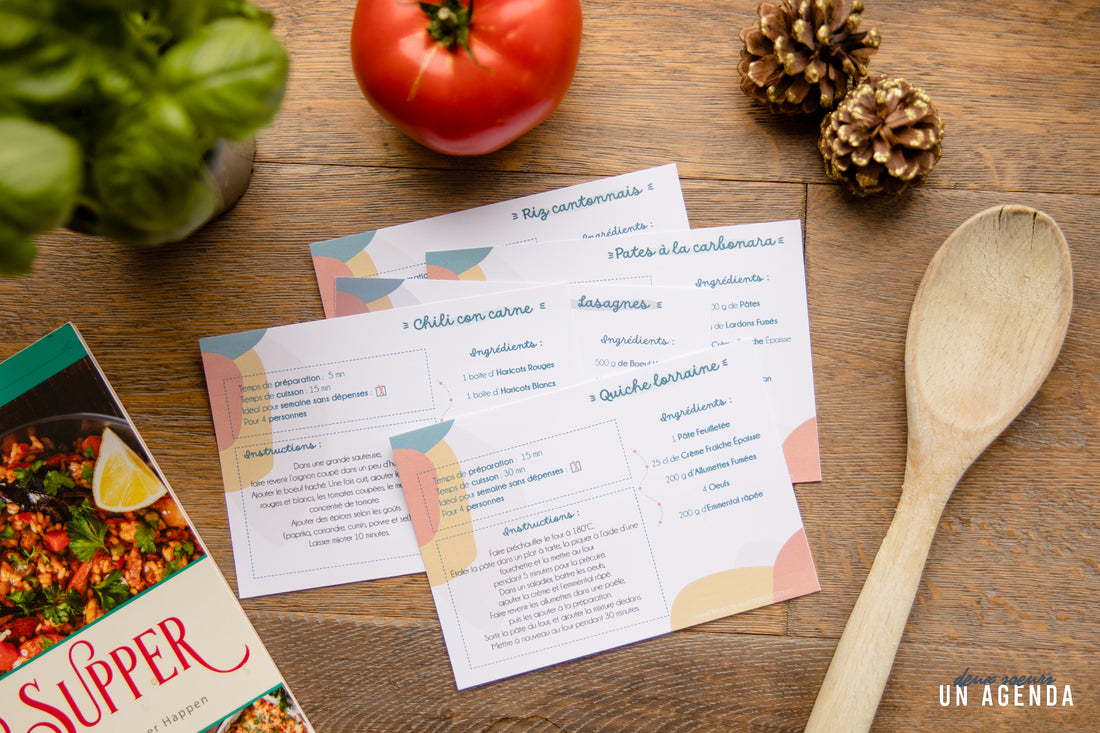 Riz cantonnais
Ingrédients :
Pates à la carbonara
Ingrédients :
00 g de Pâtes
de Lardons Fumés
Crème Fraîche Epaisse
Lasagnes
Ingrédients :
500 g de Boeuf
Chili con carne
Temps de préparation : 5 mn
Temps de cuisson : 15 mn
Idéal pour semaine sans dépenses :
Pour 4 personnes
Ingrédients :
1 boite d'Haricots Rouges
1 boite d'Haricots Blancs
Instructions :
Dans une grande sauteuse,
faire revenir l'oignon coupé dans un peu d'hu
Ajouter le boeuf haché. Une fois cuit, ajouter le
rouges et blancs, les tomates coupées, le m
concentré de tomate.
Ajouter des épices selon les goûts
(paprika, coriandre, cumin, poivre et sel)
Laisser mijoter 10 minutes.
Quiche lorraine
Temps de préparation : 15 mn
Temps de cuisson : 30 mn
Idéal pour semaine sans dépenses :
Pour 4 personnes
Ingrédients :
1 Pâte Feuilletée
25 cl de Crème Fraîche Épaisse
200 g d'Allumettes Fumées
4 Oeufs
200 g d'Emmental râpée
Instructions :
Faire préchauffer le four à 180°C.
Étaler la pâte dans un plat à tarte, la piquer à l'aide d'une
fourchette et la mettre au four
pendant 5 minutes pour la précuire.
Dans un saladier, battre les oeufs,
ajouter la crème et l'emmental râpé.
Faire revenir les allumettes dans une poêle,
puis les ajouter à la préparation.
Sortir la pâte du four, et ajouter la mixture dedans.
Mettre à nouveau au four pendant 30 minutes.
SUPPER
er Happen
deux soeurs
UN AGENDA